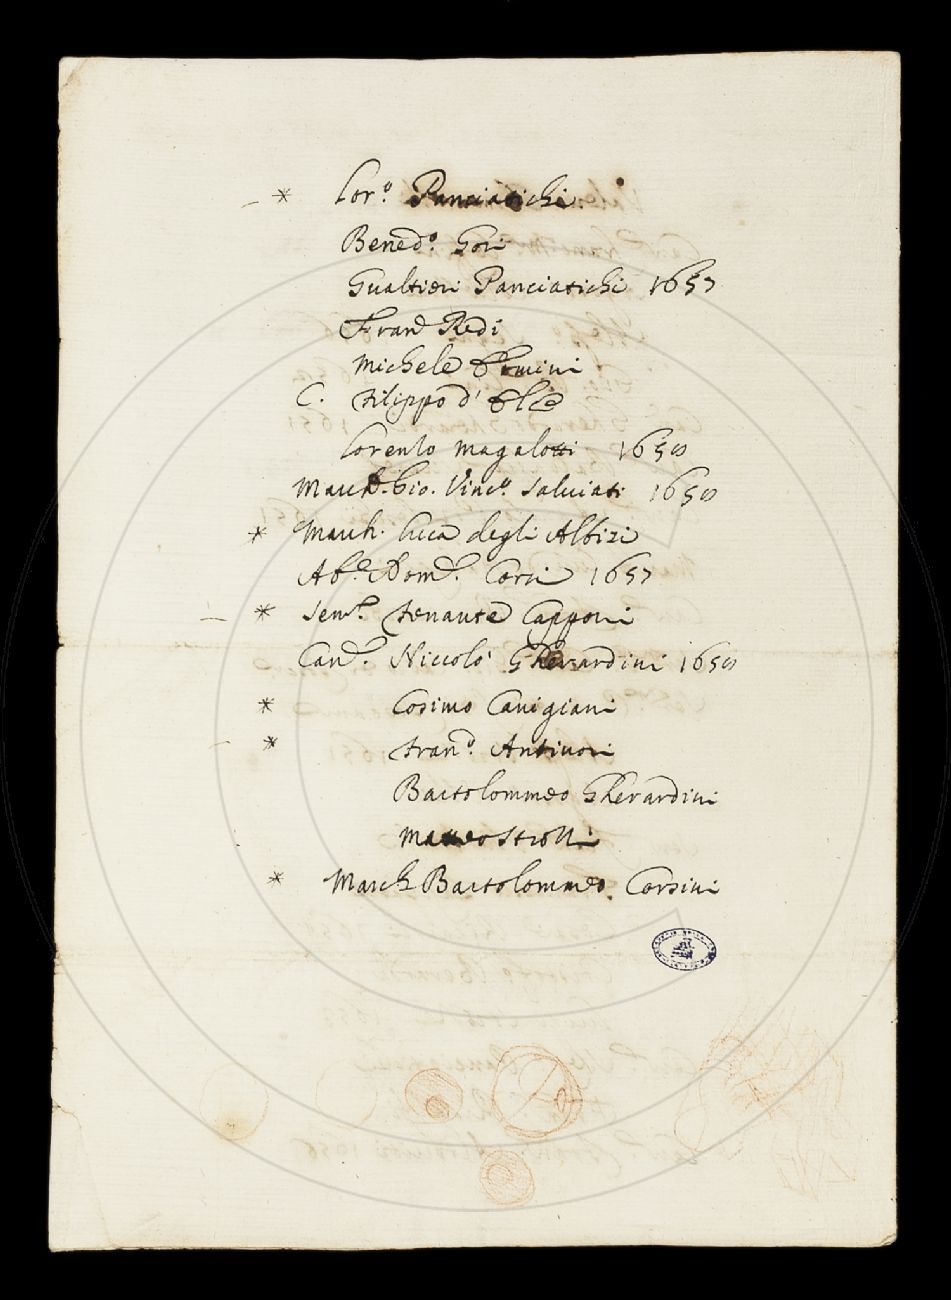 * Lor.º Panciatichi.
Bened.º Gori
Gualtieri Panciatichi 1657
Fran.º Redi
Michele Ermini
C. Filippo d'Elci
Lorenzo Magalotti 1650
March. Gio. Vinc.º Salviati 1650
* March. Luca degli Albizi
Ab.e Dom.º Corsi 1657
* Sen.re Ferrante Capponi
Can.co Niccolò Gherardini 1650
* Cosimo Canigiani
* Fran.º Antinori
Bartolommeo Gherardini
Matteo Strozzi
* March Bartolommeo Corsini